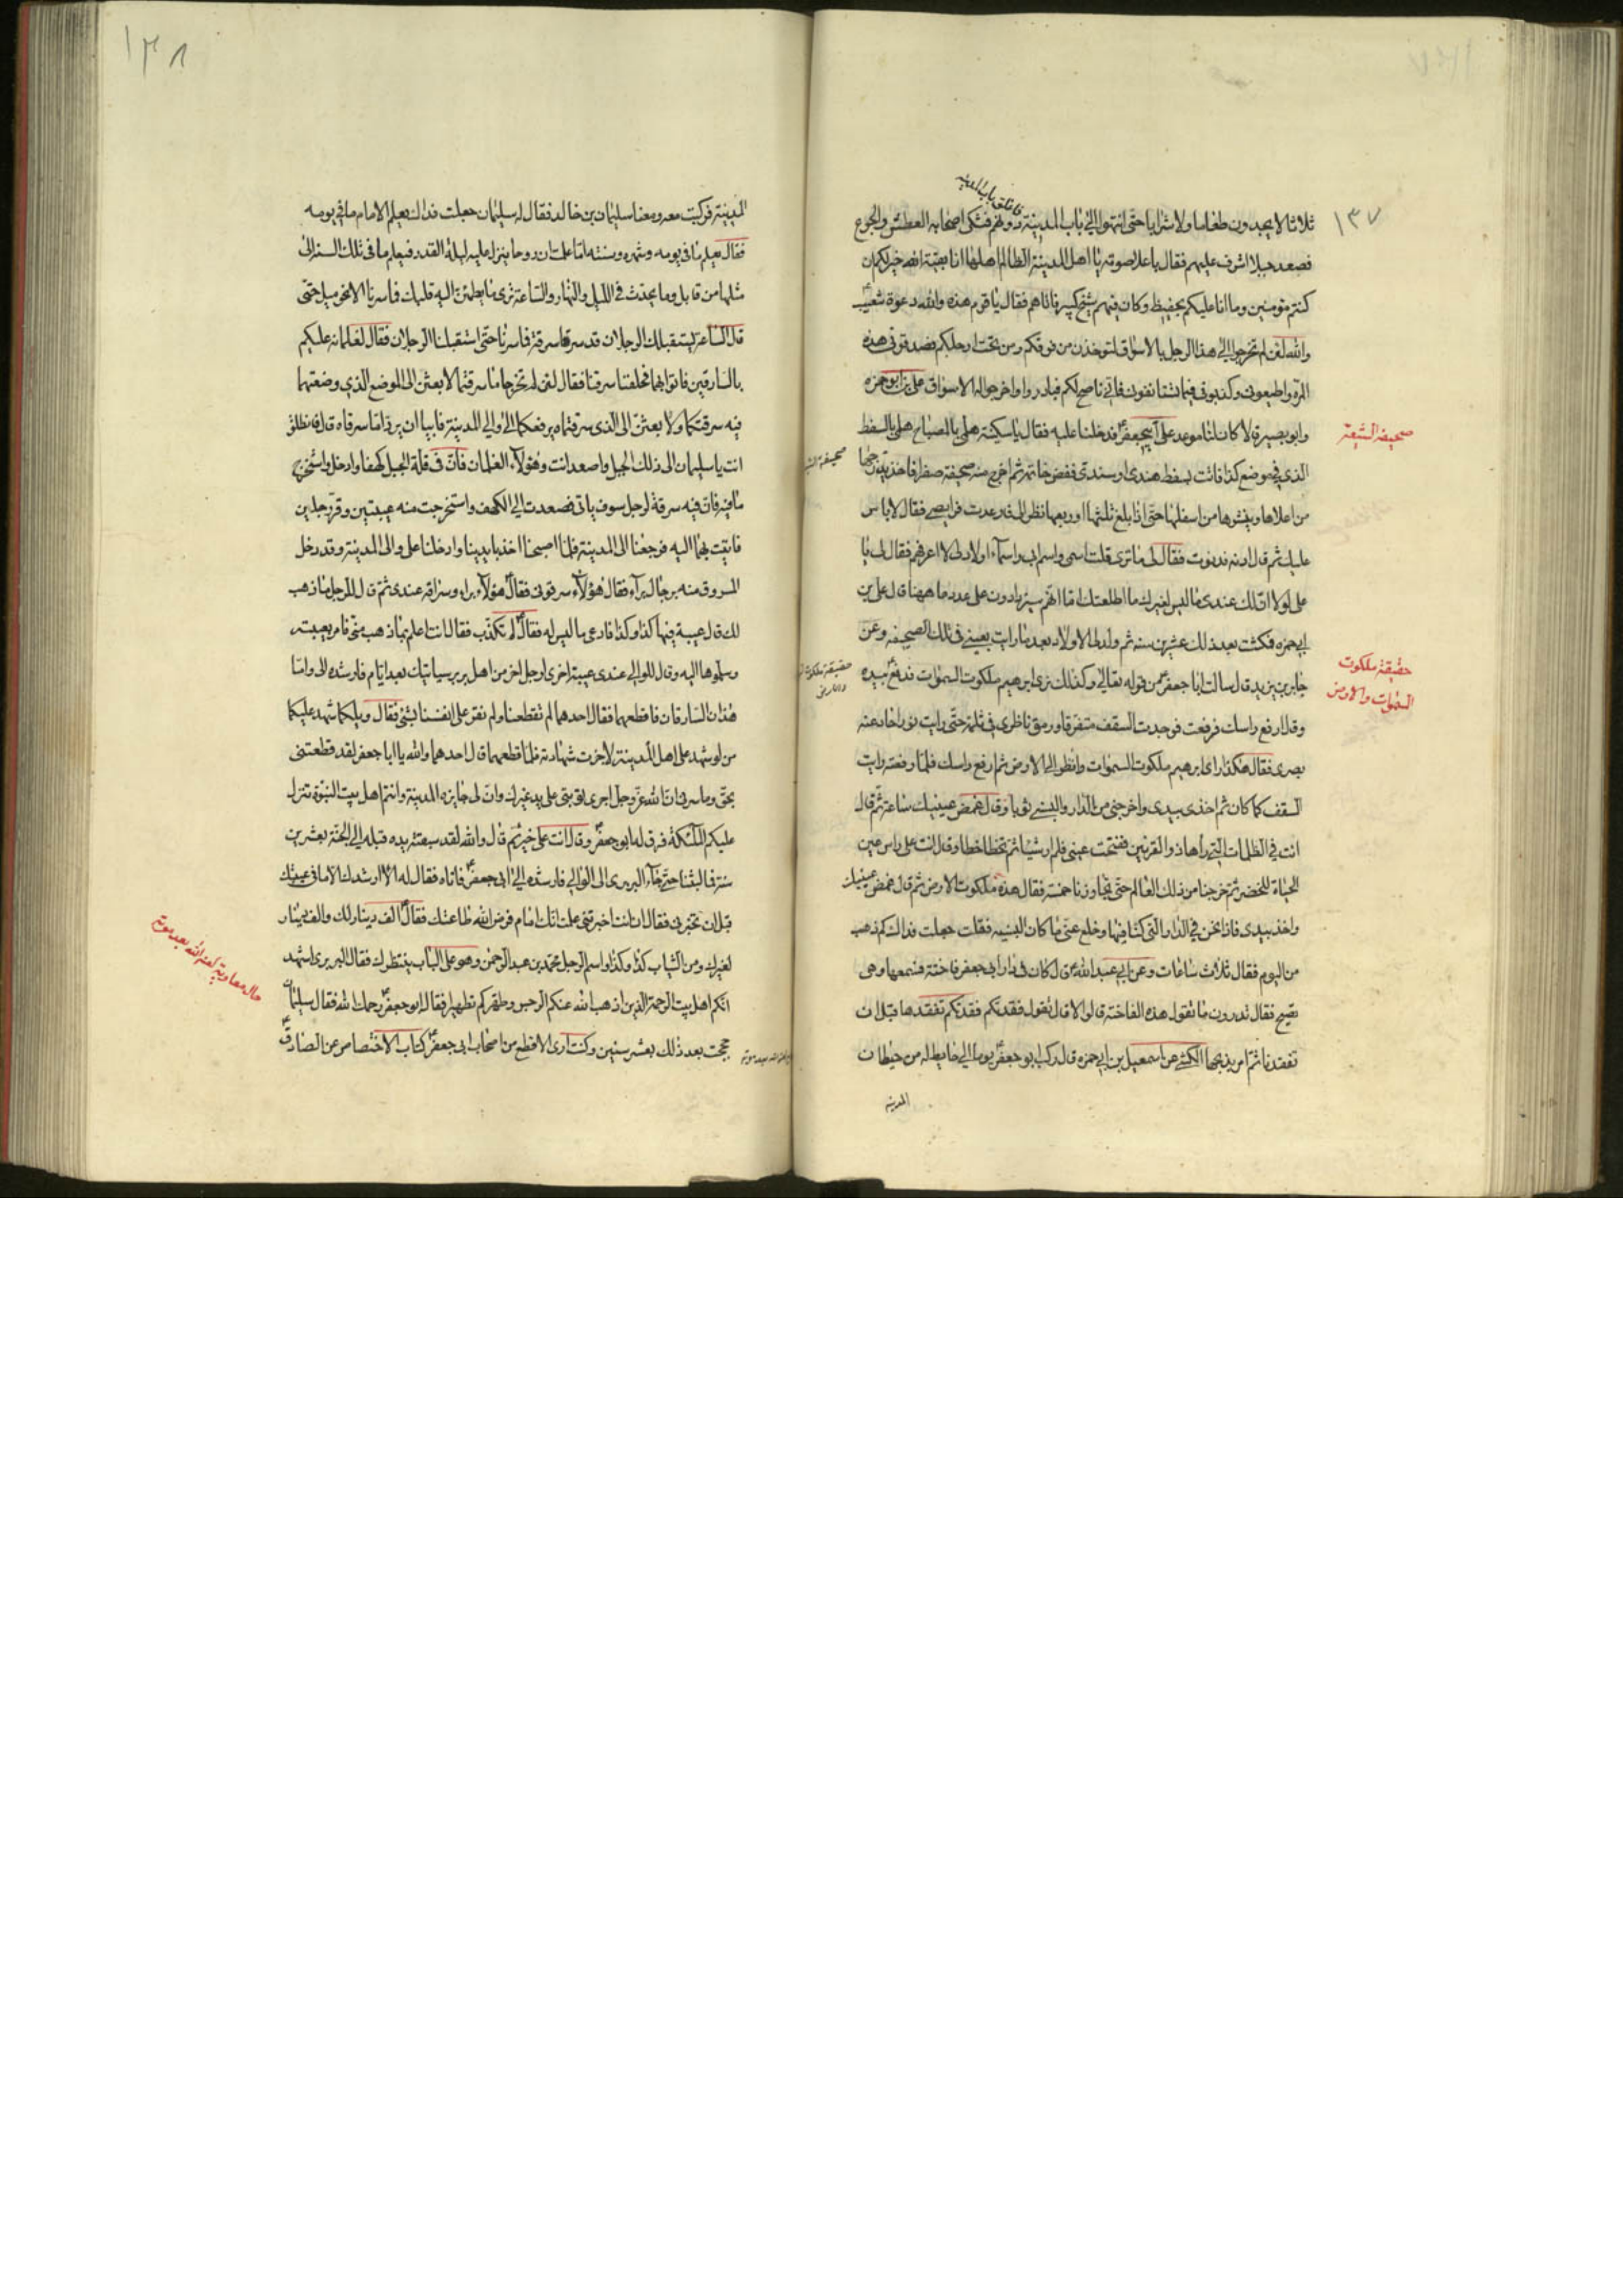 ١٣٧
ثلاثا لا يجدون طعاما ولا شرابا حتى انتهوا الى باب المدينة دونهم فشكى اصحابه العطش والجوع
فصعد جبلا اشرف عليهم فقال باعلا صوته يا اهل المدينة الظالم اهلها انا بقية الله خير لكم ان
كنتم مؤمنين وما انا عليكم بحفيظ وكان فيهم شيخ كبير فاتاهم فقال يا قوم هذه والله دعوة شعيب
والله لئن لم تخرجوا الى هذا الرجل بالاسواق لتؤخذن من فوقكم ومن تحت ارجلكم فصدقوني هذه
المرة واطيعوني وكذبوني فيما تستانفون فاني ناصح لكم فبادروا واخرجوا له الاسواق على بن ابو حمزه
وابو بصير قالا كان لنا موعد على ابي جعفر فدخلنا عليه فقال يا سكينة هلمي بالمصباح هلمي بالسفط
صحيفة الشيعة
الذي في موضع كذا فاتت بسفط هندى او سندى ففض خاتمه ثم اخرج منه صحيفة صفرا فاخذ يدرجها
من اعلاها وينشرها من اسفلها حتى اذا بلغ ثلثها او ربعها نظر الى فارعدت فرايصي فقال لا باس
عليك ثم قال ادنه فدنوت فقال لى ما ترى قلت اسمى واسم ابى واسماء اولاد لى لا اعرفهم فقال لى يا
على لولا ان لك عندى ما ليس لغيرك ما اطلعتك اما انهم سيزدادون على عدد ما ههنا قال على بن
ابي حمزه فمكثت بعد ذلك عشرين سنه ثم ولد لى الاولاد بعدد ما رايت بعيني في تلك الصحيفه وعن
جابر بن يزيد قال سالت ابا جعفر عن قوله تعالى وكذلك نرى ابرهيم ملكوت السموات فدفع بيده
حقيقة ملكوت
السموات والارض
وقال ارفع راسك فرفعت فوجدت السقف متفرقا ورمق ناظرى في ثلمة حتى رايت نورا حار عنه
بصرى فقال هكذا راى ابرهيم ملكوت السموات وانظر الى الارض ثم ارفع راسك فلما رفعته رايت
السقف كما كان ثم اخذ بيدى واخرجني من الدار والبسني ثوبا وقال غمض عينيك ساعة ثم قال
انت في الظلمات التي راها ذو القرنين ففتحت عيني فلم ار شيئا ثم تخطا خطا وقال انت على راس عين
الحياة للخضر ثم خرجنا من ذلك العالم حتى تجاوزنا خمسة فقال هذه ملكوت الارض ثم قال غمض عينيك
واخذ بيدى فاذا نحن في الدار التي كنا فيها وخلع عني ما كان البسنيه فقلت جعلت فداك كم ذهب
من اليوم فقال ثلاث ساعات وعن ابي عبد الله قال كان في دار ابي جعفر فاختة فسمعها وهى
تصيح فقال تدرون ما تقول هذه الفاختة قالوا لا قال تقول فقدتكم فقدتكم نفقدها قبل ان
تفقدنا ثم امر بذبحها الكشي عن اسمعيل بن ابي حمزه قال ركب ابو جعفر يوما الى حايط له من حيطان
المدينه
١٣٨
المدينة فركبت معه ومعنا سليمان بن خالد فقال له سليمان جعلت فداك يعلم الامام ما في يومه
فقال يعلم ما في يومه وشهره وسنته اما علمت ان روحا ينزل عليه ليلة القدر فيعلم ما في تلك السنة الى
مثلها من قابل وما يحدث في الليل والنهار والساعة ترى ما يطمئن اليه قلبك فاسرنا الا نحو ميل حتى
قال الساعة يستقبلك الرجلان قد سرقا سرقة فاسرنا حتى استقبلنا الرجلان فقال لغلمانه عليكم
بالسارقين فاتوا بهما فحلفتا سرقنا فقال لئن لم تخرجا ما سرقتما لابعثن الى الموضع الذي وضعتما
فيه سرقتكما ولابعثن الى الذى سرقتماه يرفعكما الى والي المدينة فابيا ان يردا ما سرقاه قال فانطلق
انت يا سليمان الى ذلك الجبل واصعد انت وهؤلاء الغلمان فان في قلة الجبل كهفا وادخل واستخرج
ما فيه فان فيه سرقة لرجل سوف ياتى فصعدت الى الكهف واستخرجت منه عيبتين وقر رجلين
فاتيت بهما اليه فرجعنا الى المدينة فلما اصبحنا اخذ بايدينا وادخلنا على والى المدينة وقد دخل
المسروق منه برجال براء فقال هؤلاء سرقوني فقال هؤلاء براء وسراقه عندى ثم قال للرجل ما ذهب
لك قال عيبة فيها كذا وكذا فادعى ما ليس له فقال لم تكذب فقال انت اعلم بما ذهب مني فامر بعيبته
وسلموها اليه وقال للوالي عندى عيبة اخرى لرجل اخر من اهل بربر سياتيك بعد ايام فارشده الى واما
هذان السارقان فاقطعهما فقال احدهما لم تقطعنا ولم نقر على انفسنا بشئ فقال ويلكما شهد عليكما
من لو شهد على اهل المدينة لاجزت شهادته فلما قطعهما قال احدهما والله يا ابا جعفر لقد قطعتني
بحق وما سرني ان الله عز وجل اجرى توبتى على يد غيرك وان لى ما يزه المدينة وانتم اهل بيت النبوة تنزل
عليكم الملئكة فرق له ابو جعفر وقال انت على خير ثم قال والله لقد سبقته يده قبله الى الجنة بعشرين
سنة فما لبثنا حتى جاء البربرى الى الوالي فارشده الى ابي جعفر فاتاه فقال له الا ارشدك الا ما في عيبتك
قبل ان تخبرني فقال ان انت اخبرتني علمت انك امام فرض الله طاعتك فقال الف دينار لك والف دينار
لغيرك ومن الثياب كذا وكذا واسم الرجل محمد بن عبد الرحمن وهو على الباب ينتظرك فقال البربرى اشهد
انكم اهل بيت الرحمة الذين اذهب الله عنكم الرجس وطهركم تطهيرا فقال ابو جعفر رحمك الله فقال سليمان
حججت بعد ذلك بعشر سنين وكنت ارى الاقطع من اصحاب ابى جعفر كتاب الاختصاص عن الصادق
حال معاوية لعنه الله بعد موته